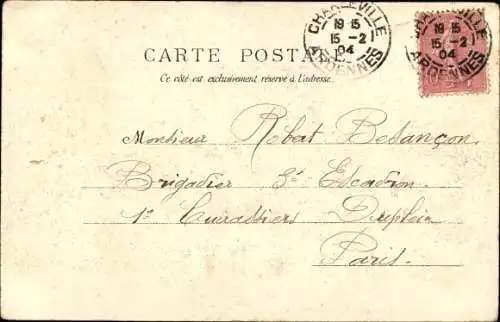 CARTE POSTALE
Ce côté est exclusivement réservé à l'adresse.
CHARLEVILLE
19 15
15 - 2
04
ARDENNES
CHARLEVILLE
19 15
15 - 2
04
ARDENNES
Monsieur Robert Besançon
Brigadier 3e Escadron
1er Cuirassiers Dupleix
Paris.